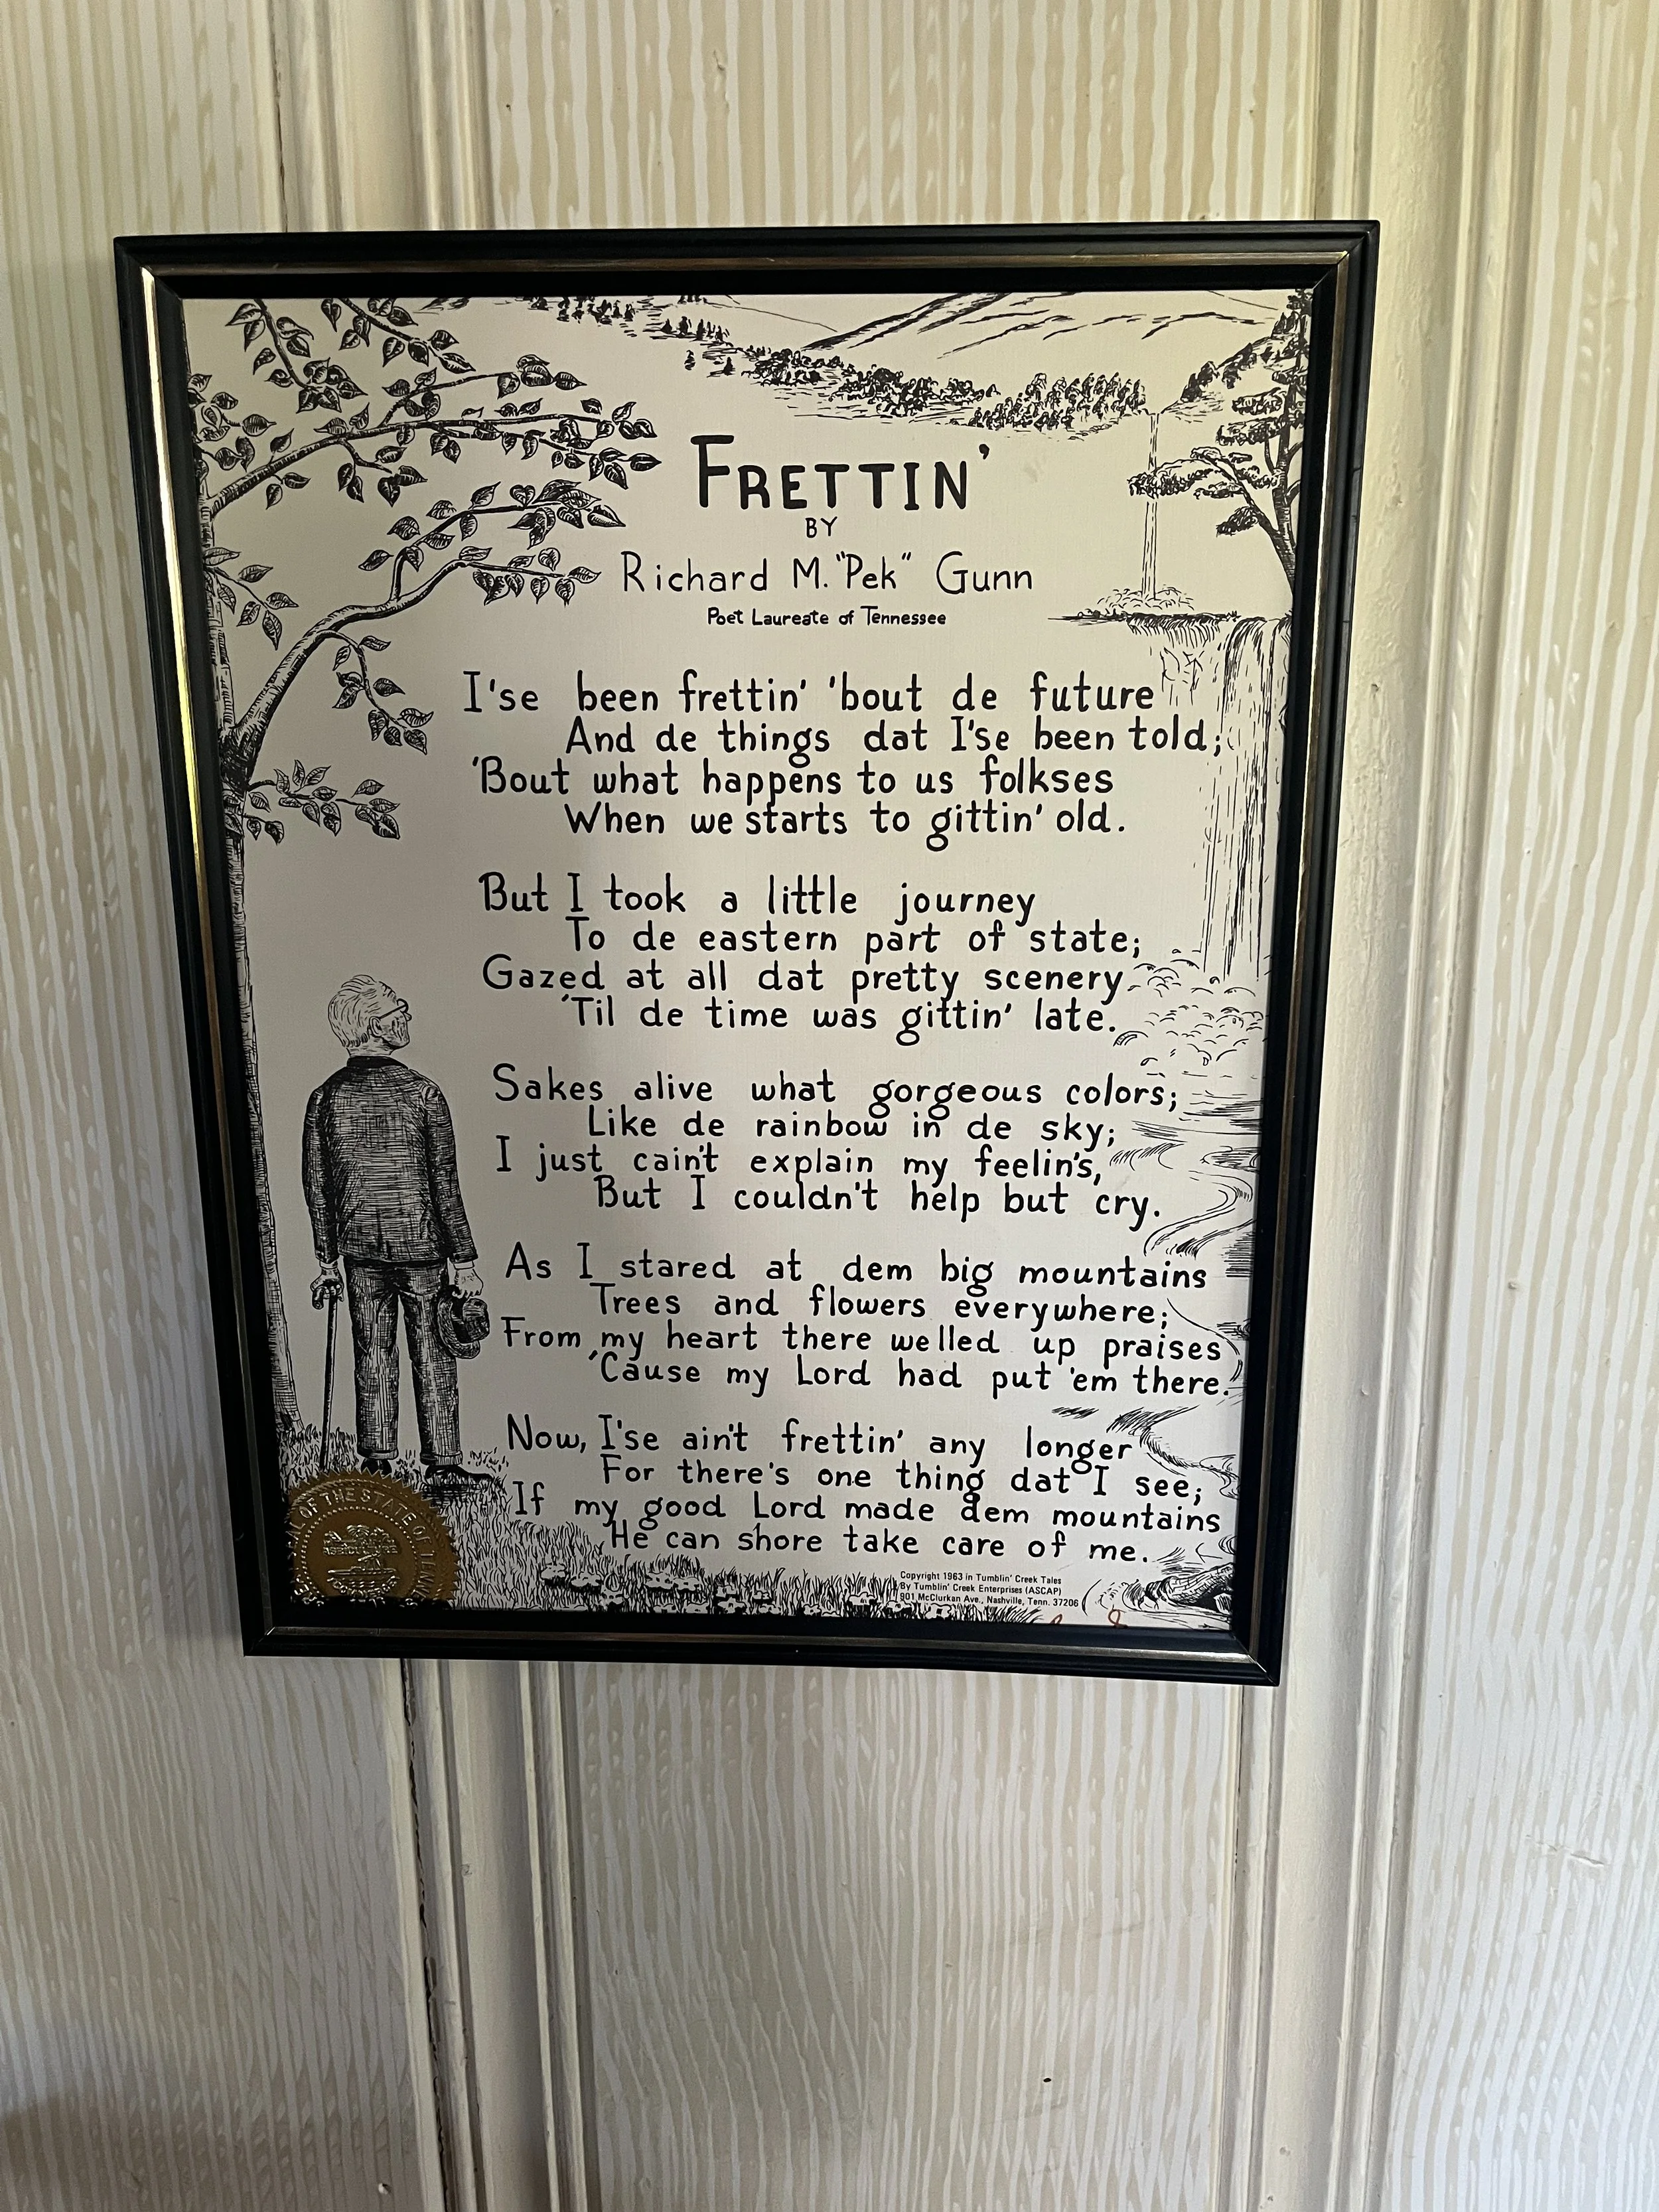 FRETTIN'
BY
Richard M. "Pek" Gunn
Poet Laureate of Tennessee
I'se been frettin' 'bout de future
And de things dat I'se been told;
'Bout what happens to us folkses
When we starts to gittin' old.
But I took a little journey
To de eastern part of state;
Gazed at all dat pretty scenery
'Til de time was gittin' late.
Sakes alive what gorgeous colors;
Like de rainbow in de sky;
I just cain't explain my feelin's,
But I couldn't help but cry.
As I stared at dem big mountains
Trees and flowers everywhere;
From my heart there welled up praises
'Cause my Lord had put 'em there.
Now, I'se ain't frettin' any longer
For there's one thing dat I see;
If my good Lord made dem mountains
He can shore take care of me.
Copyright 1963 in Tumblin' Creek Tales
By Tumblin' Creek Enterprises (ASCAP)
901 McClurkan Ave., Nashville, Tenn. 37206
SEAL OF THE STATE OF
AGRICULTURE